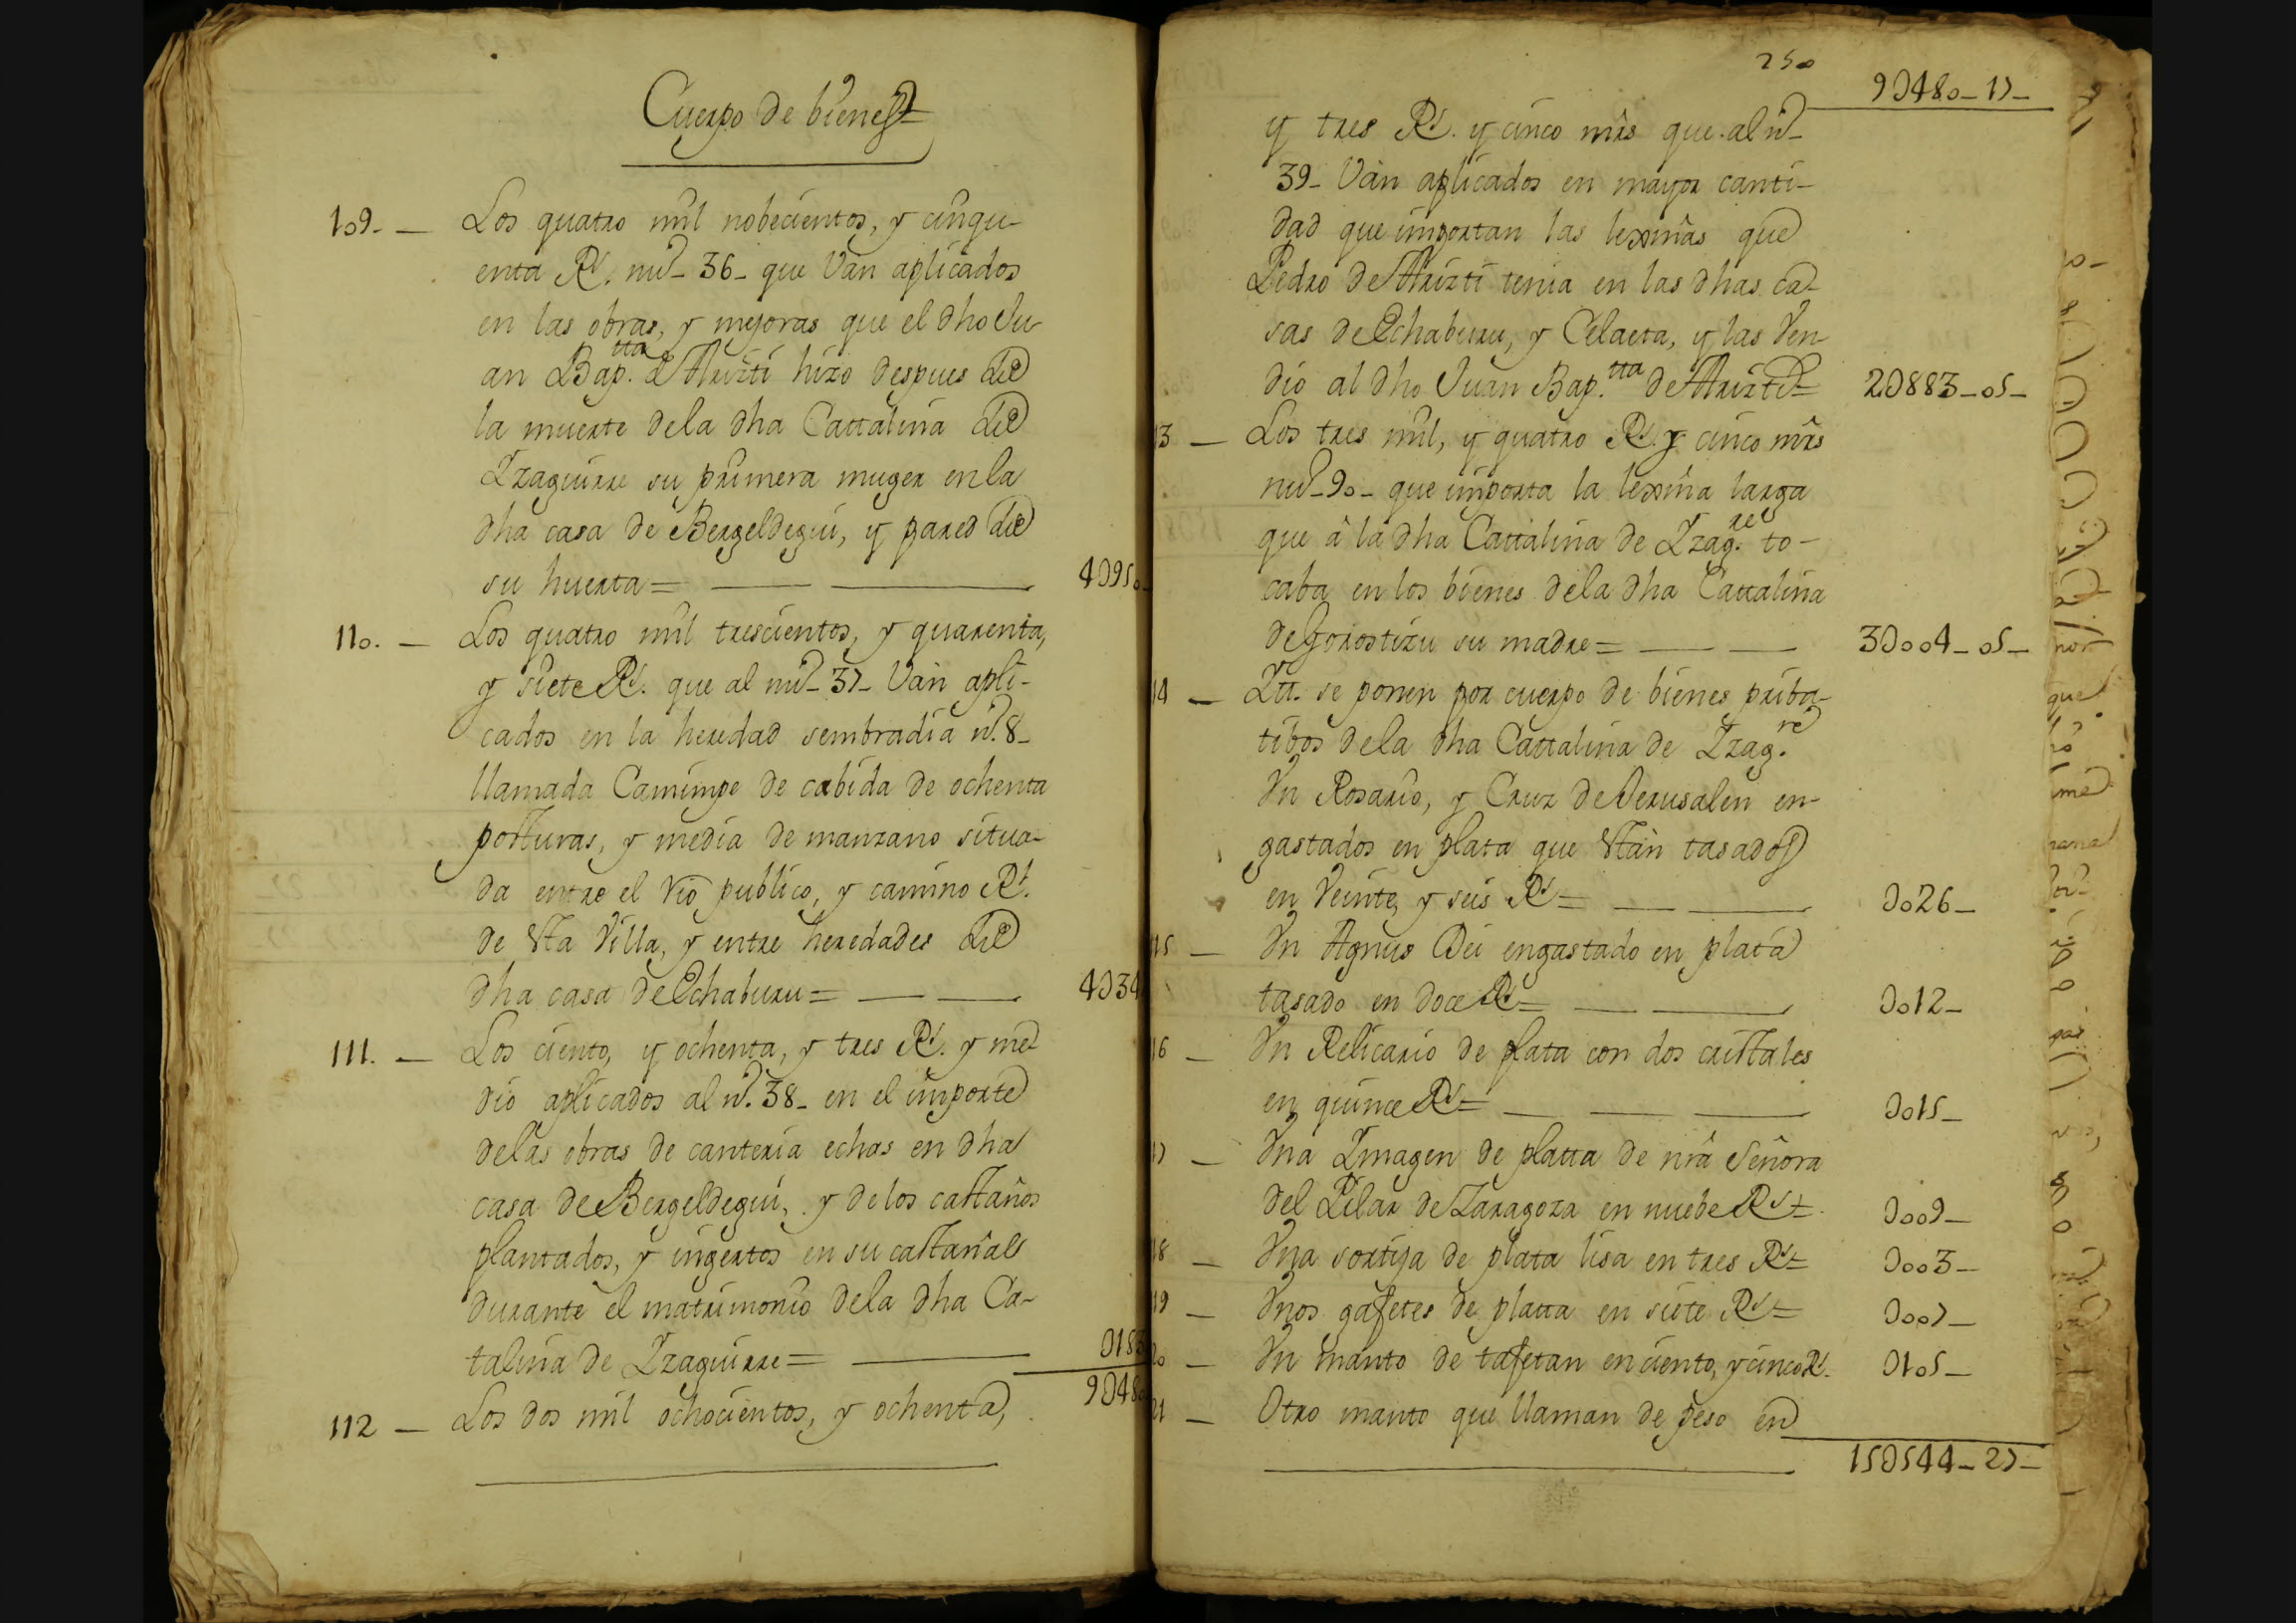 Cuerpo de bienes=
109. — Los quatro mil nobecientos, y cinqu-
enta Rs. nuo_ 36_ que Van aplicados
en las obras, y mejoras que el dho Ju-
an Bap.tta de Arizti hizo despues de
la muerte dela dha Cattalina de
Yzaguirre su primera muger enla
dha casa de Bergeldegui, y pared de
su huerta= — — 4U950
110. — Los quatro mil trescientos, y quarenta,
y siete Rs. que al nuo_ 37_ Vàn apli-
cados en la heredad sembradia no. 8_
llamada Camimpe de cabida de ochenta
posturas, y media de manzano situa-
da entre el rio publico, y camino Rl.
de Sta Villa, y entre heredades de
dha casa de Echaburu= — — 4U34
111. — Los ciento, y ochenta, y tres Rs. y me-
dio aplicados al no. 38_ en el importe
delas obras de canteria echas en dha
casa de Bergeldegui, y de los castaños
plantados, y ingertos en su castañal
durante el matrimonio dela dha Ca-
talina de Yzaguirre= — U183
9U480
112 — Los dos mil ochocientos, y ochenta,
250
9U480_17_
y tres Rs. y cinco mrs que al no_
39_ Vàn aplicados en mayor canti-
dad que importan las lexmas que
Pedro de Arizti tenia en las dhas ca-
sas de Echaburu, y Celaeta, y las Ven-
dio al dho Juan Bap.tta de Arizti= 2U883_05_
13 — Los tres mil, y quatro Rs. y cinco mrs
nuo_90_ que importa la lexma larga
que â la dha Cattalina de Yzag.re to-
caba en los bienes dela dha Cattalina
de Gorostizu su madre= — — 3U004_05_
14 — Ytt. se ponen por cuerpo de bienes priba-
tibos dela dha Cattalina de Yzag.re
Vn Rosario, y Cruz de Jerusalen en-
gastados en plata que Stàn tasados
en Veinte, y seis Rs= — — U026_
15 — Vn Agnus Dei engastado en plata
tasado en doce Rs= — — U012_
16 — Vn Relicario de plata con dos cristales
en quince Rs= — — — U015_
17 — Vna Ymagen de platta de nrâ Señora
del Pilar de Zaragoza en nuebe Rs=. U009_
18 — Vna sortija de plata lisa en tres Rs= U003_
19 — Vnos gafetes de platta en siete Rs= U007_
20 — Vn manto de tafetan en ciento, y cinco Rs. U105_
21 — Otro manto que llaman de peso en
15U544_27_